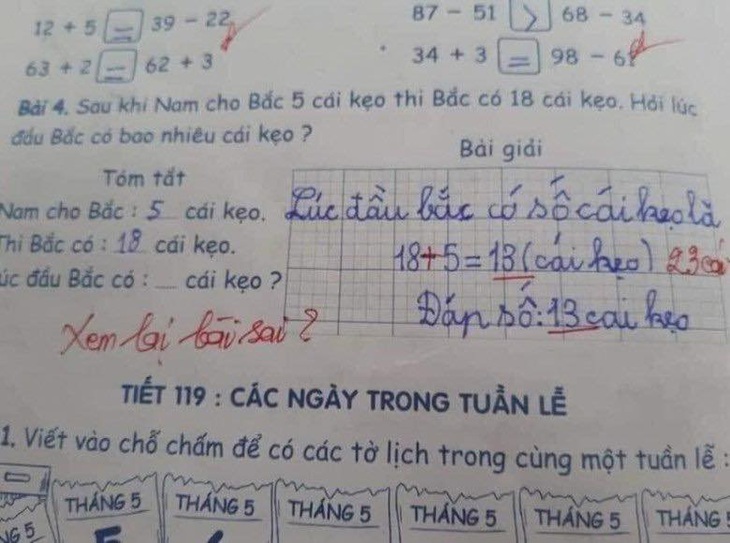 12 + 5 = 39 - 22
87 - 51 > 68 - 34
63 + 2 = 62 + 3
34 + 3 = 98 - 61
Bài 4. Sau khi Nam cho Bắc 5 cái kẹo thì Bắc có 18 cái kẹo. Hỏi lúc
đầu Bắc có bao nhiêu cái kẹo ?
Tóm tắt
Nam cho Bắc : 5 cái kẹo.
Thì Bắc có : 18 cái kẹo.
úc đầu Bắc có : __ cái kẹo ?
Bài giải
Lúc đầu bắc có số cái kẹo là
18+5=13 (cái kẹo) 23 cái
Đáp số: 13 cái kẹo
Xem lại bài sai ?
TIẾT 119 : CÁC NGÀY TRONG TUẦN LỄ
1. Viết vào chỗ chấm để có các tờ lịch trong cùng một tuần lễ :
NG 5 THÁNG 5 THÁNG 5 THÁNG 5 THÁNG 5 THÁNG 5 THÁNG 5